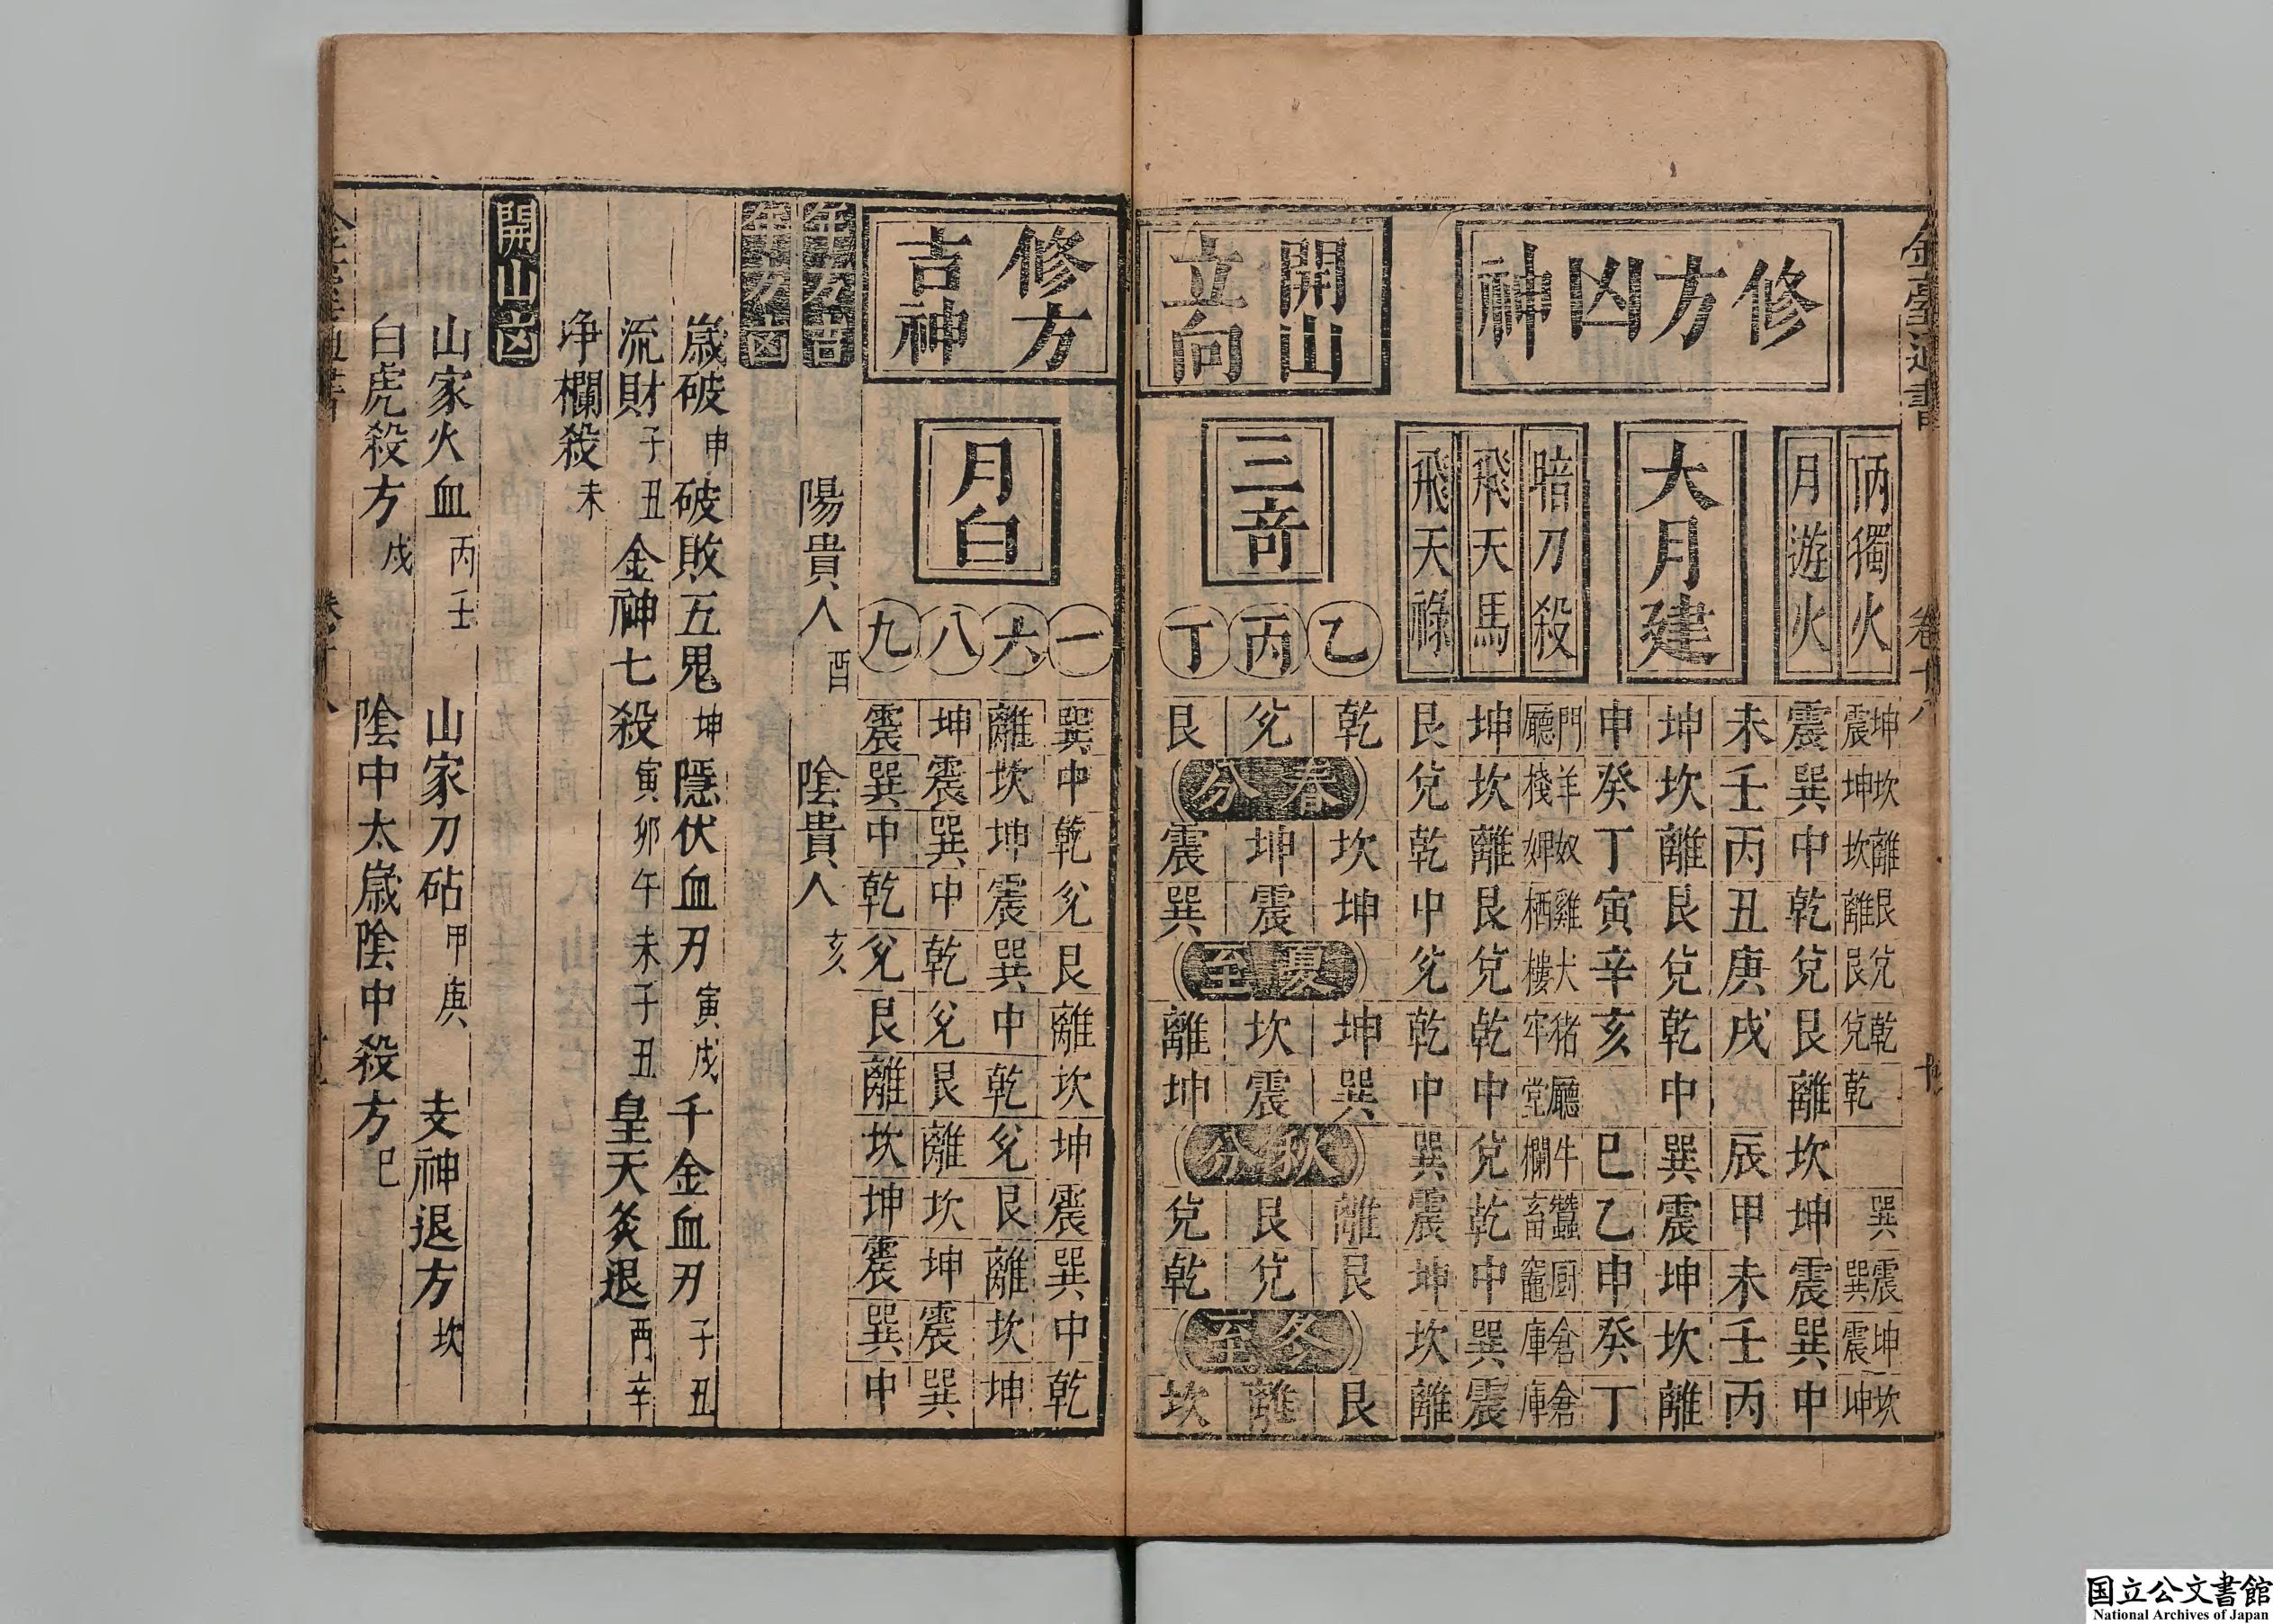 金臺通書
卷廿八
修方凶神
丙獨火
坤震 坎坤 離坎 艮離 兌艮 乾兌 乾 巽 震巽 坤震 坎坤
月遊火
震 巽 中 乾 兌 艮 離 坎 坤 震 巽 中
大月建
未 壬 丙 丑 庚 戌 辰 甲 未 壬 丙
坤 坎 離 艮 兌 乾 中 巽 震 坤 坎 離
申 癸 丁 寅 辛 亥 巳 乙 申 癸 丁
暗刀殺
門廳 羊棧 奴婢 雞栖 犬樓 猪牢 廳堂 牛欄 蠶畜 厨竈 倉庫 倉庫
飛天馬
坤 坎 離 艮 兌 乾 中 兌 乾 中 巽 震
飛天祿
艮 兌 乾 中 兌 乾 中 巽 震 坤 坎 離
開山立向
三奇
乙 乾 坎 坤 坤 巽 離 艮 艮
丙 兌 坤 震 坎 震 艮 兌 離
丁 艮 震 巽 離 坤 兌 乾 坎
春分
夏至
秋分
冬至
修方吉神
月白
一 巽 中 乾 兌 艮 離 坎 坤 震 巽 中 乾
六 離 坎 坤 震 巽 中 乾 兌 艮 離 坎 坤
八 坤 震 巽 中 乾 兌 艮 離 坎 坤 震 巽
九 震 巽 中 乾 兌 艮 離 坎 坤 震 巽 中
年方吉
陽貴人 酉 陰貴人 亥
年方凶
歲破 申 破敗五鬼 坤 隱伏血刃 寅戌 千金血刃 子丑
流財 子丑 金神七殺 寅卯午未子丑 皇天炙退 丙辛
净欄殺 未
開山凶
山家火血 丙壬 山家刀砧 甲庚 支神退方 坎
白虎殺方 戌 陰中太歲陰中殺方 巳
国立公文書館
National Archives of Japan